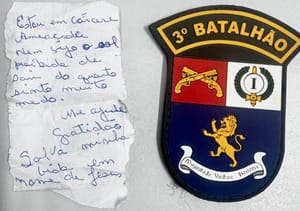 Estou em cárcere
Ameaçada
Nem vejo o sol
proibida de
sair do quarto
sinto muito
medo.
Me ajude
Gratidão
Salva minha
vida em
nome de Jesus
3º BATALHÃO
I